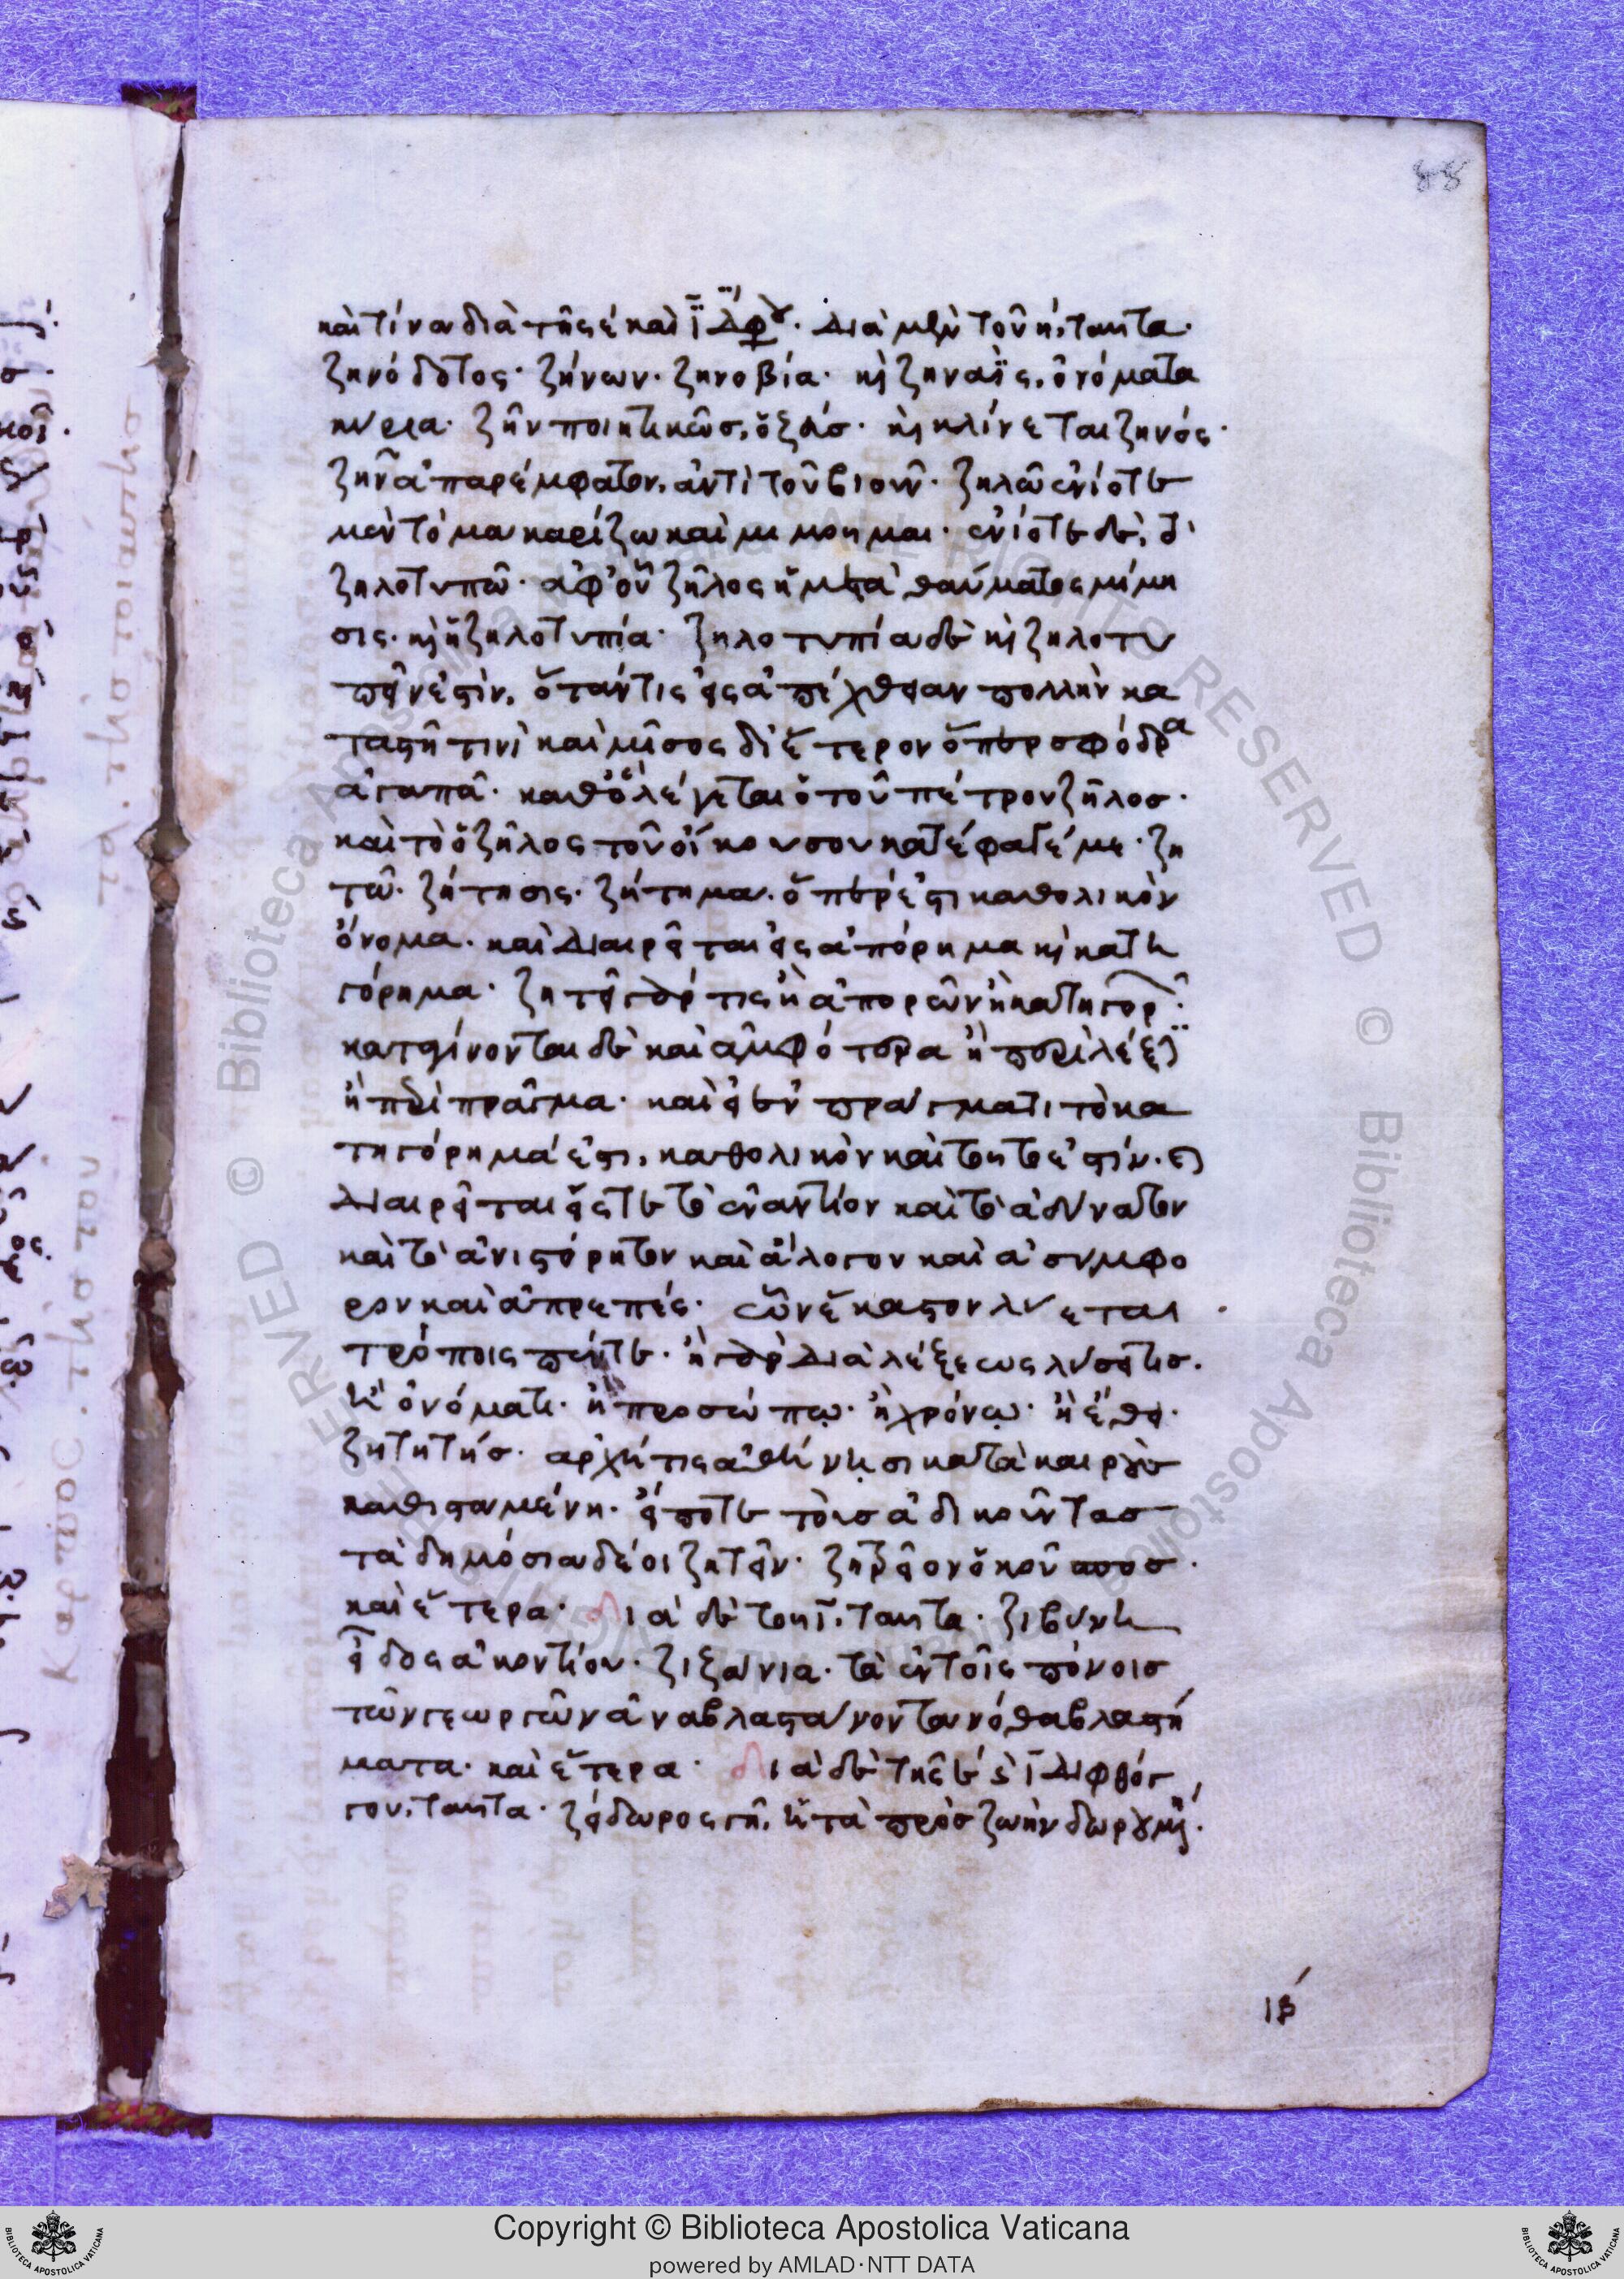 88
καὶ τίνα διὰ τῆς έ καὶ ϊ διφ. διὰ μὲν τοῦ η, ταῦτα.
ζηνόδοτος. ζήνων. ζηνοβία. κὶ ζηναῒς, ὀνόματα
κύρια. ζὴν ποιητικῶσ, ὁ ζεύσ. κὶ κλίνεται ζηνός.
ζῆν ἀπαρέμφατον, ἀντὶ τοῦ βιοῦν. ζηλῶ ἐνίοτε
μὲν τὸ μακαρίζω καὶ μιμοῦμαι. ἐνίοτε δὲ, τὸ
ζηλοτυπῶ. ἀφ' οὗ ζῆλος ἡ μετὰ θαύματος μίμη
σις. κὶ ἡ ζηλοτυπία. ζηλοτυπία δὲ κὶ ζηλοτυ
πεῖν ἐστὶν, ὅταν τις εἰς ἀπέχθειαν πολλὴν κα
ταστῆ τινὶ καὶ μῖσος δι' ἕτερον ὅπερ σφόδρα
ἀγαπᾶ. καθὃ λέγεται ὁ τοῦ πέτρου ζῆλοσ.
καὶ τὸ ὁ ζῆλος τοῦ οἴκου σου κατέφαγέ με. ζη
τῶ. ζήτησις. ζήτημα. ὅπερ ἐστι καθολικὸν
ὄνομα. καὶ διαιρεῖται εἰς ἀπόρημα κὶ κατη
γόρημα. ζητεῖ γάρ τις ἢ ἀπορῶν ἢ κατηγορ.
καταγίνονται δὲ καὶ ἀμφότερα ἢ περὶ λέξιν
ἢ περὶ πρᾶγμα. καὶ εἰ ἐν πράγματι τὸ κα
τηγόρημά ἐστι, καθολικὸν καὶ τοῦτο ἐστίν.
διαιρεῖται εἴς τε τὸ ἐναντίον καὶ τὸ ἀδύνατον
καὶ τὸ ἀνιστόρητον καὶ ἄλογον καὶ ἀσύμφο
ρον καὶ ἀπρεπές. ὧν ἕκαστον λύεται
τρόποις πέντε. ἢ γὰρ διὰ λέξεως λύσει τισ.
ἢ ὀνόματι. ἢ προσώπῳ. ἢ χρόνῳ. ἢ ἔθει.
ζητητήσ. ἀρχή τις ἀθήνῃσι κατὰ καιροὺσ
καθισταμένη. εἴ ποτε τοὺσ ἀδικοῦντασ
τὰ δημόσια δέοι ζητεῖν.
καὶ ἕτερα. διὰ δὲ τοῦ ϊ, ταῦτα. ζιβύνη
εἶδος ἀκοντίου. ζιζάνια. τὰ ἐν τοῖς πόνοισ
τῶν γεωργῶν ἀναβλαστάνοντα νόθα βλαστή
ματα. καὶ ἕτερα. διὰ δὲ τῆς ε ϊ διφθόγ
γου, ταῦτα. ζείδωρος γῆ, ἡ τὰ πρὸσ ζωὴν δωρουμένη.
ιβ
Copyright © Biblioteca Apostolica Vaticana
powered by AMLAD·NTT DATA